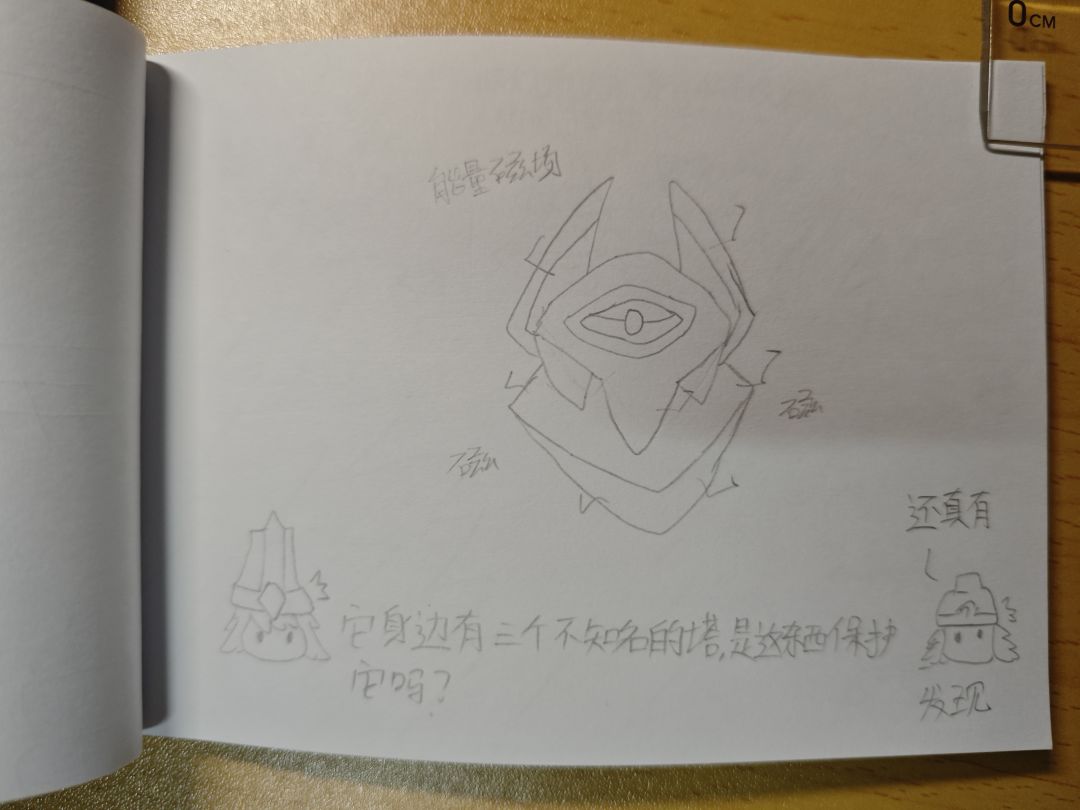 0CM
能量磁场
磁
磁
还真有
它身边有三个不知名的塔,是这东西保护
它吗?
发现